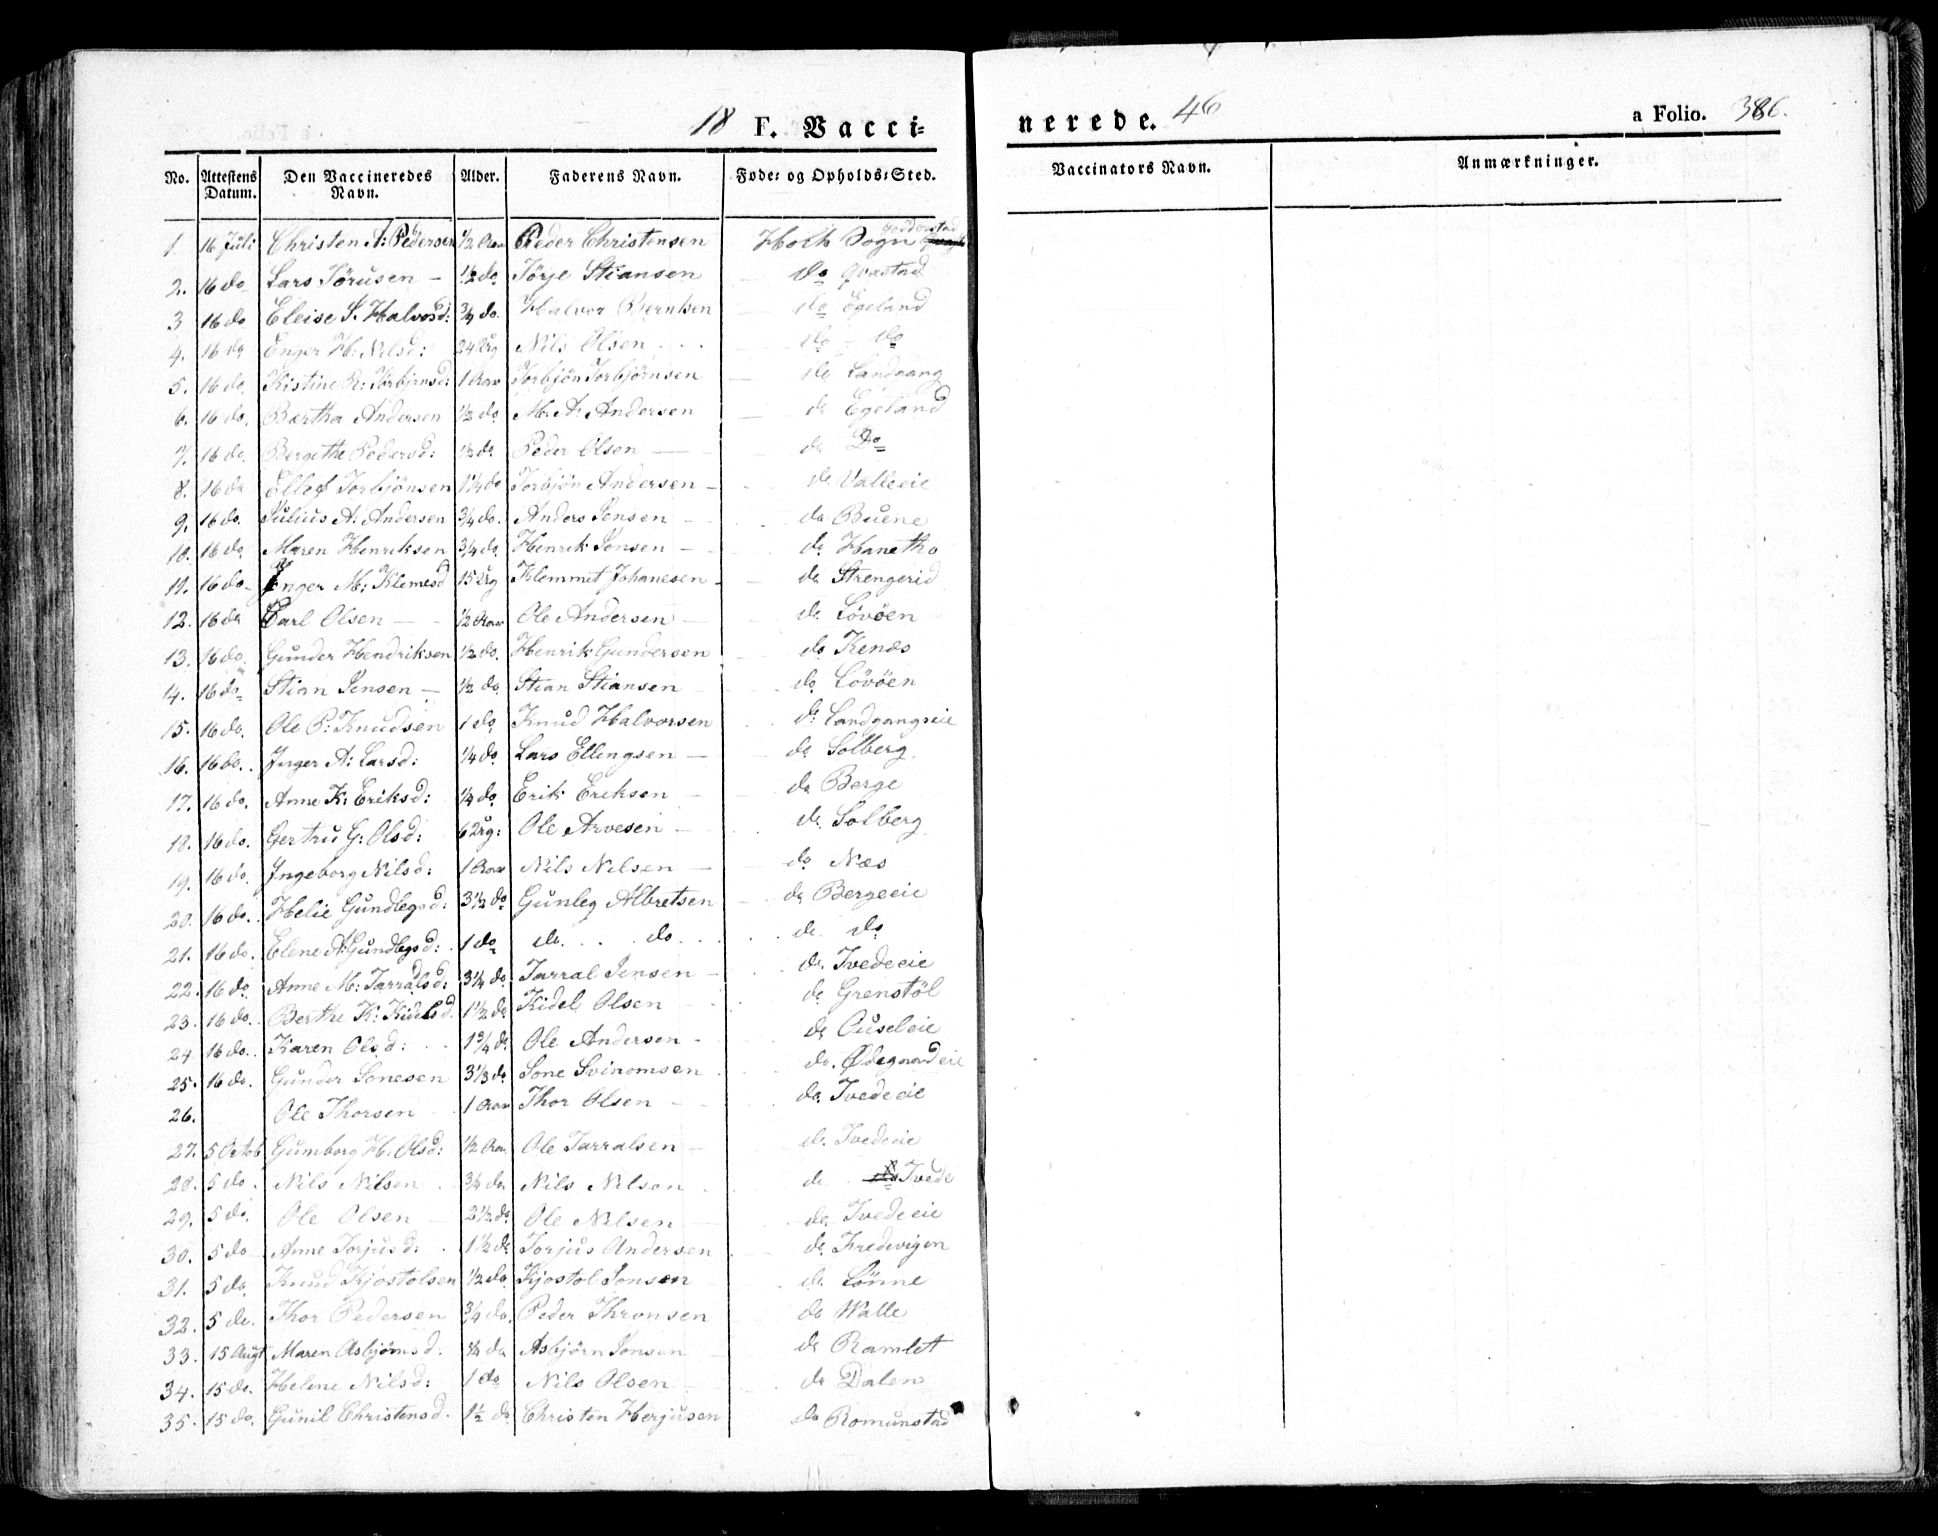 18 F. Vaccinerede. 46 a Folio. 386.
No. Attestens Datum. Den Vaccineredes Navn. Alder. Faderens Navn. Føde- og Opholds-Sted. Vaccinators Navn. Anmærkninger.
1. 16 Juli Christen A: Pedersen 1/2 Aar Peder Christensen Holt Sogn Goddorstad
2. 16 do Lars Törusen – 1/2 do Törje Stiansen do Qvastad
3 16 do Eleise S. Halvosd: 3/4 do. Halvor Berntsen do Egeland
4. 16 do Enger H: Nilsd: 24 Ug Nils Olsen do do
5. 16 do. Kistine R: Torbjrnsd: 1 Aar Torbjön Torbjörnsen do Landgang
6. 16 do. Bærtha Andersen 1/2 do M. A: Andersen do Egeland
7. 16 do. Bergethe Pedersd: 1/2 do Peder Olsen do Do
8. 16 do Ellef Torbjönsen 1 1/4 do Torbjön Andersen do Valleeie
9. 16 do. Julius A: Andersen 3/4 do. Anders Jensen do Buene
10. 16 do Maren Henriksen 3/4 do. Henrik Jonsen do Hanetho
11. 16 do Inger M: Klemesd 15 Ug Klemmit Johanesen do Strengerid
12. 16 do Carl Olsen 1/2 Aar Ole Andersen do Lövöen
13. 16 do. Gunder Hendriksen 1/2 do. Henrik Gundersen do Kenæs
14. 16 do Stian Jensen – 1/2 do. Stian Stiansen do Lövöen
15. 16 do. Ole P: Knudsen 1 do Knud Halvorsen do Landgangseie
16. 16 do. Inger A: Larsd: 1/4 do Lars Ellingsen do Solberg
17. 16 do. Anne K: Eriksd: 1/4 do Erik Eriksen do Berge
18. 16 do. Gertru G: Olsd: 6 Ug: Ole Arvesen do Solberg
19. 16 do. Ingeborg Nilsd: 1 Aar Nils Nilsen do Næs
20. 16 do. Helie Gundlegsd: 3 1/2 do Gunleg Albretsen do Bergeeie
21. 16 do. Elene A: Gundlegsd: 1 do do do do do
22. 16 do Anne M: Tarralsd: 3 1/4 do. Tarral Jensen do Tvedeeie
23. 16 do. Berthe K: Kidelsd. 1 1/2 do Kidel Olsen do Grenstöl
24 16 do. Karen Olsd: 1 3/4 do Ole Andersen do Auseleie
25. 16 do. Gunder Sonesen 3 1/3 do Sone Svinomsen do. Ødegaardeie
26. Ole Thorsen 1 Aar Thor Olsen do. Tvedeeie
27. 5 Octob Gumborg H: Olsd: 1/2 Aar. Ole Tarralsen do. Tvedeeie
28. 5 do. Nils Nilsen 3/4 do. Nils Nilsen do Tvede
29. 5 do. Ole Olsen 2 1/2 do Ole Nilsen do Tvedeeie
30. 5 do Anne Torjusd: 1 1/2 do Torjus Andersen do Fredevigen
31. 5 do. Knud Kjostolsen 1/2 do Kjostol Jonsen do Lönne
32. 5 do. Thor Pedersen 3/4 do. Peder Thronsen do Walle
33. 15 Augt Maren Asbjörnsd. 1/4 do Asbjörn Jonsen do Ramlet
34. 15 do. Helene Nilsd: 1 do Nils Olsen do Dalen
35. 15 do. Gunil Christensd. 1 1/2 do. Christen Herjusen do Romunstad